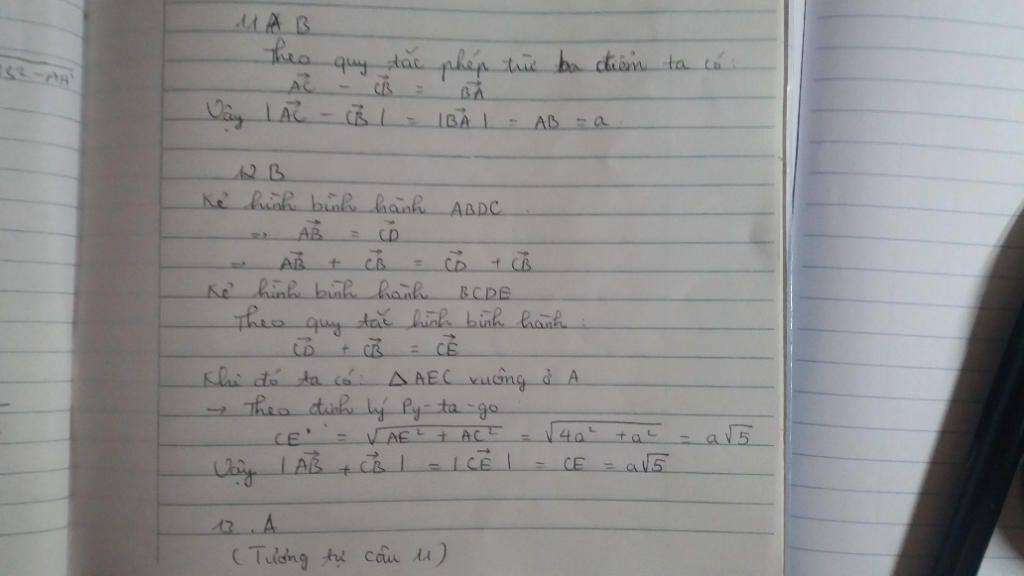 √S² - AH²
11 A B
Theo quy tắc phép trừ ba điểm ta có:
AC⃗ - CB⃗ = BA⃗
Vậy |AC⃗ - CB⃗| = |BA⃗| = AB = a
12 B
Kẻ hình bình hành ABDC.
=> AB⃗ = CD⃗
→ AB⃗ + CB⃗ = CD⃗ + CB⃗
Kẻ hình bình hành BCDE
Theo quy tắc hình bình hành:
CD⃗ + CB⃗ = CE⃗
Khi đó ta có: △AEC vuông ở A
→ Theo định lý Py-ta-go
CE = √AE² + AC² = √4a² + a² = a√5
Vậy |AB⃗ + CB⃗| = |CE⃗| = CE = a√5
13. A
(Tương tự câu 11)